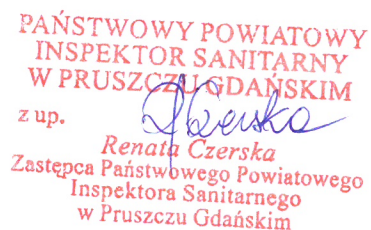 PAŃSTWOWY POWIATOWY
INSPEKTOR SANITARNY
W PRUSZCZU GDAŃSKIM
z up.
RCzerska
Renata Czerska
Zastępca Państwowego Powiatowego
Inspektora Sanitarnego
w Pruszczu Gdańskim